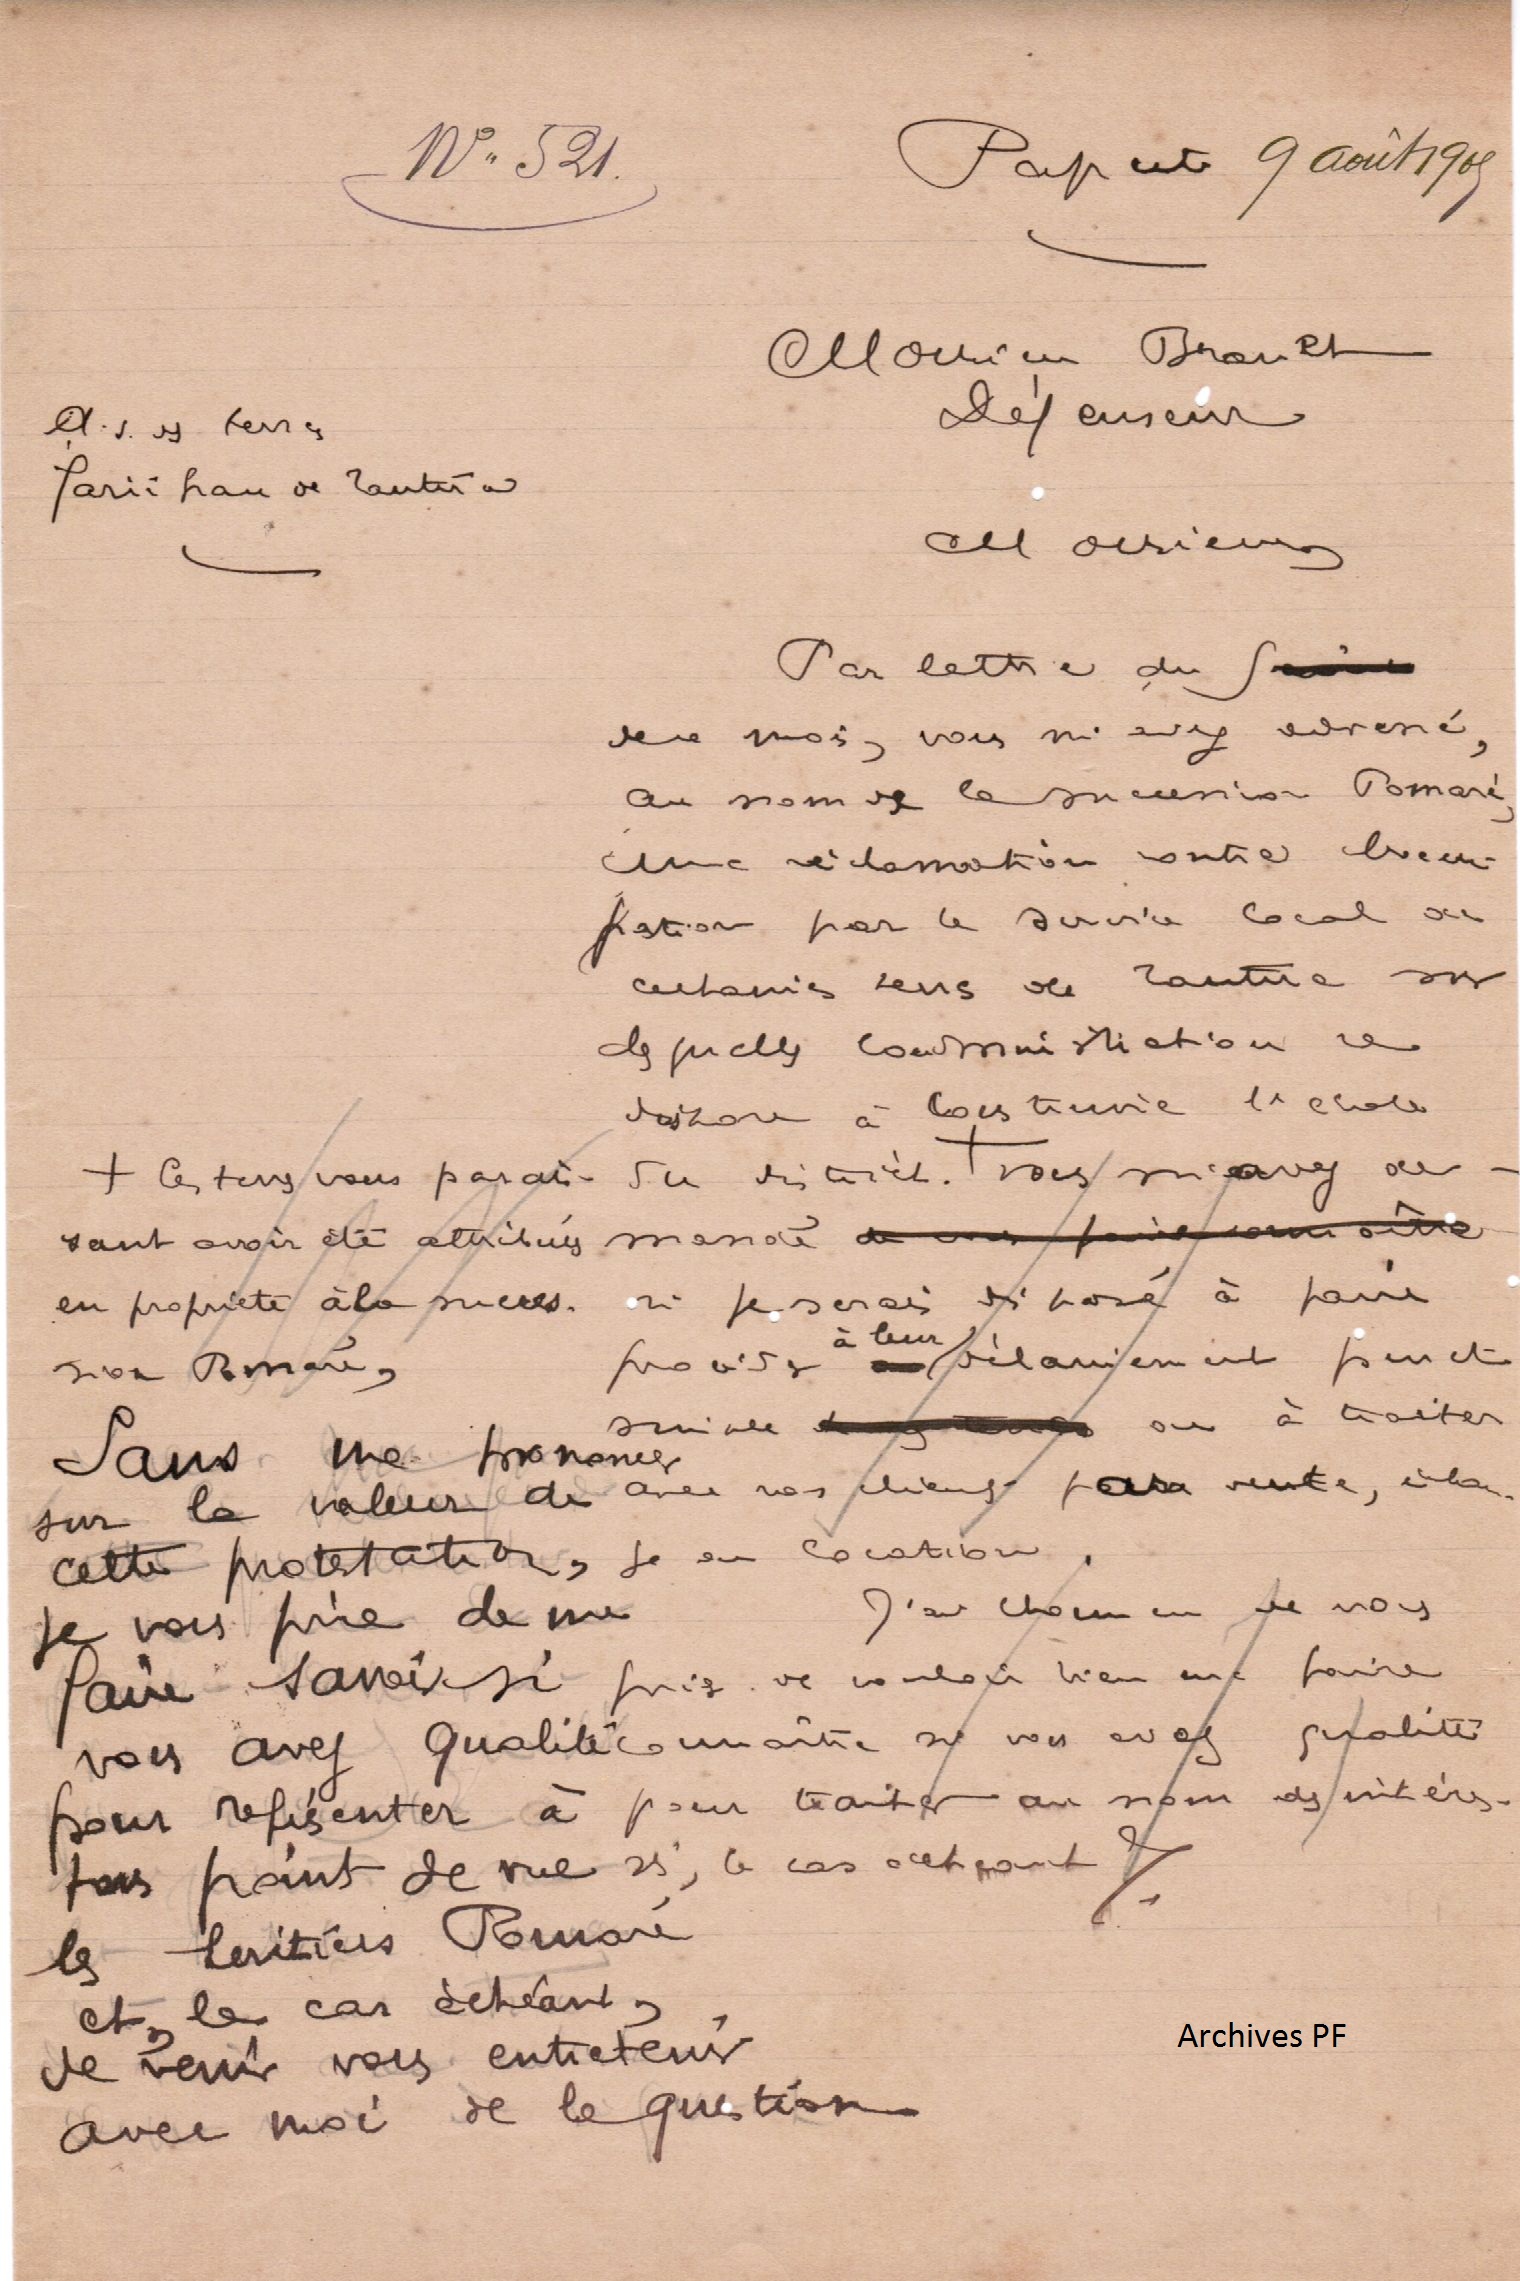 N° 521.
Papeete 9 août 1905
Monsieur Brault
Défenseur
A.s. des terres
de Tautira
Monsieur
Par lettre du 5
de ce mois, vous m'avez adressé,
au nom de la succession Pomaré,
une réclamation contre l'occu-
pation par le service local de
certaines terres de Tautira sur
lesquelles l'administration se
dispose à construire l'école
du district. + Vous m'avez de-
mandé de vous faire connaître
si je serais disposé à faire
procéder à leur délaissement pur et
simple ou à traiter
avec vos clients pour vente, échan-
ge ou location.
J'ai l'honneur de vous
prier de vouloir bien me faire
connaître si vous avez qualité
pour traiter au nom des intéres-
sés, le cas échéant
+ Ces terres vous parais-
sant avoir été attribuées
en propriété à la succes-
sion Pomaré,
Sans me prononcer
sur la valeur de
cette protestation,
je vous prie de me
faire savoir si
vous avez qualité
pour représenter à
tous point de vue
les héritiers Pomaré
et, le cas échéant,
de venir vous entretenir
avec moi de la question
Archives PF